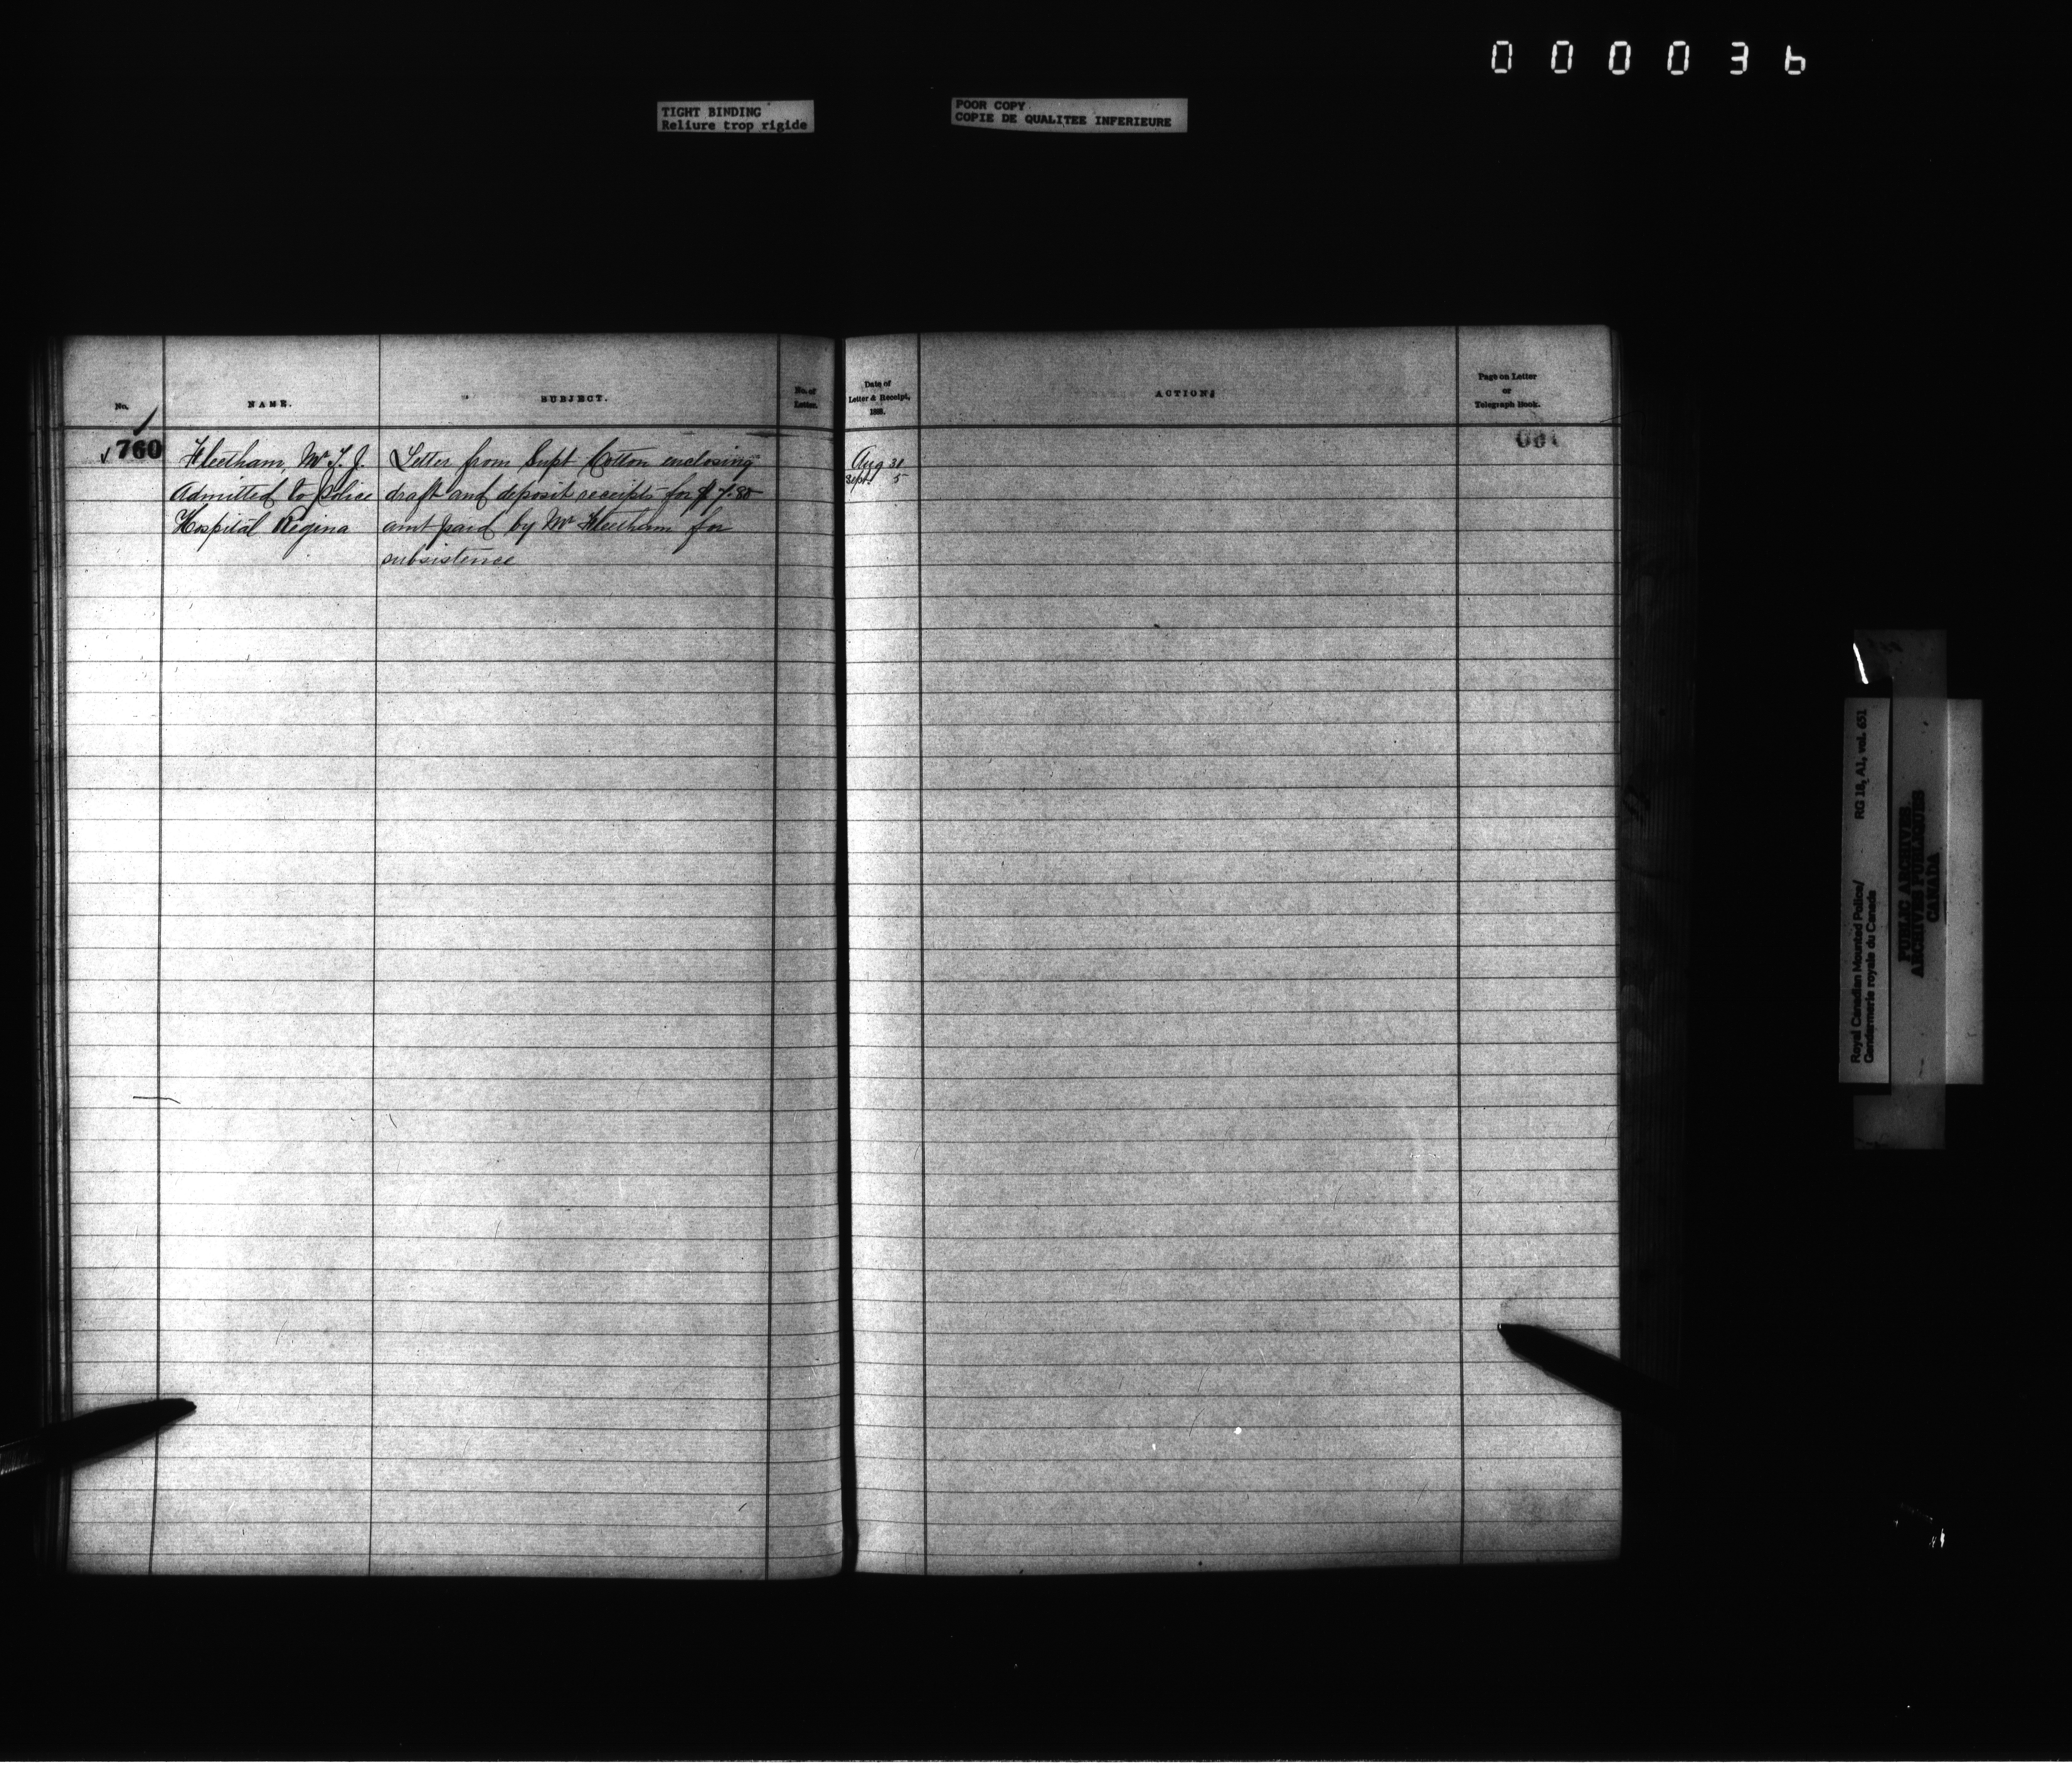 000036
TIGHT BINDING
Reliure trop rigide
POOR COPY
COPIE DE QUALITEE INFERIEURE
No.
NAME.
SUBJECT.
No. of
Letter.
Date of
Letter & Receipt,
188
ACTION
Page on Letter
or
Telegraph Book.
760
Fleetham, Mr T. J.
Admitted to Police
Hospital Regina
Letter from Supt Cotton enclosing
draft and deposit receipts for $7.80
amt paid by Mr Fleetham for
subsistence
Aug 31
Sept 5
Royal Canadian Mounted Police/
Gendarmerie royale du Canada
RG 18, A1, vol. 651
PUBLIC ARCHIVES
ARCHIVES PUBLIQUES
CANADA